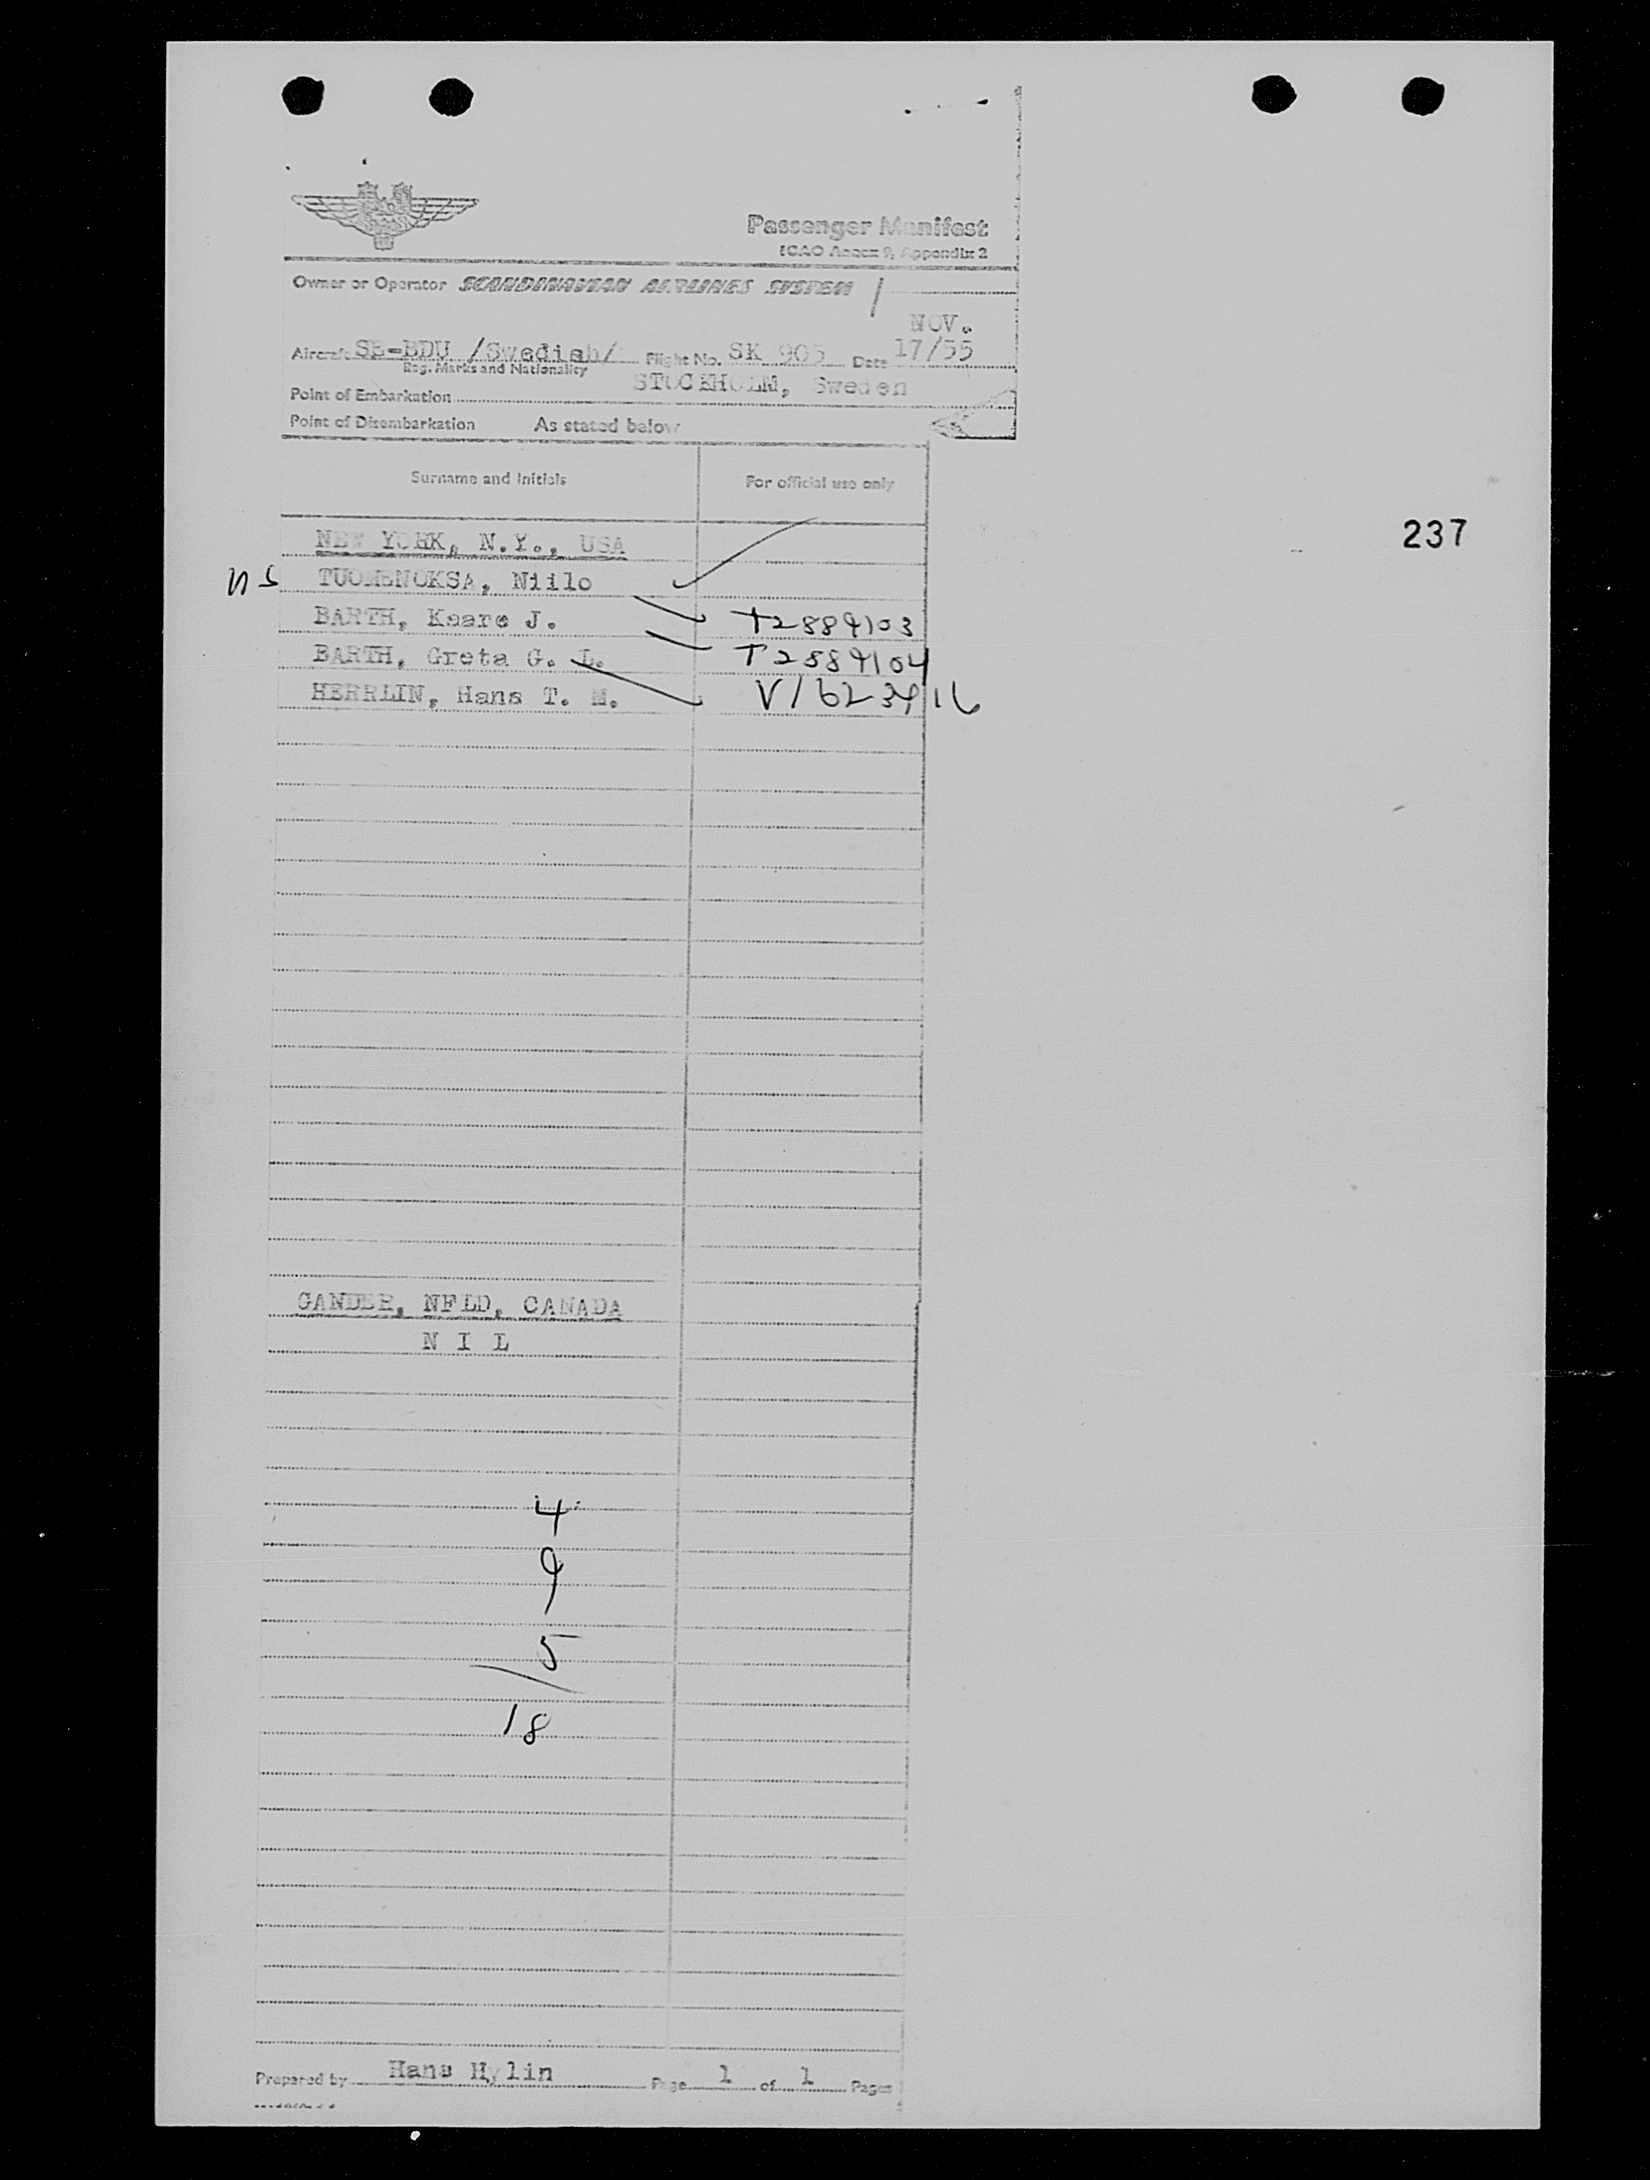 Passenger Manifest
ICAO Annex 9, Appendix 2
Owner or Operator SCANDINAVIAN AIRLINES SYSTEM
NOV.
Aircraft SE-BDU /Swedish/ Flight No. SK 905 Date 17/55
Reg. Marks and Nationality
STOCKHOLM, Sweden
Point of Embarkation
Point of Disembarkation As stated below
Surname and Initials For official use only
237
NEW YORK, N.Y., USA
TUOMENOKSA, Niilo
BARTH, Kaare J. T2889103
BARTH, Greta G. L. T2889104
HERRLIN, Hans T. M. V1623916
GANDER, NFLD, CANADA
N I L
4
9
5
18
Prepared by Hans Hylin Page 1 of 1 Pages